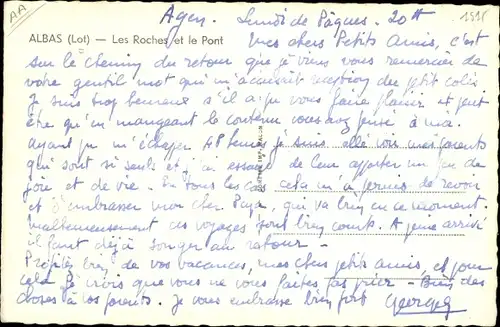 A.A.
Agen, Lundi de Pâques. 20 H
ALBAS (Lot) — Les Roches et le Pont
Mes chers Petits Amis, c'est
sur le chemin du retour que je viens vous remercier de
votre gentil mot qui m'accusait réception du petit colis
Je suis trop heureux s'il a pu vous faire plaisir et peut
être qu'en mangeant le contenu vous avez pensé à moi.
Ayant pu m'échapper 48 heures je suis allé voir mes parents
qui sont si seuls et j'ai essayé de leur apporter un peu de
joie et de vie. En tous les cas cela m'a permis de revoir
et d'embrasser mon cher Papa, qui va bien en ce moment
Malheureusement ces voyages sont bien courts. A peine arrivé
il faut déjà songer au retour -
Profitez bien de vos vacances, mes chers petits amis, et pour
cela je crois que vous ne vous faites pas prier - Bien des
choses à vos parents. Je vous embrasse bien fort